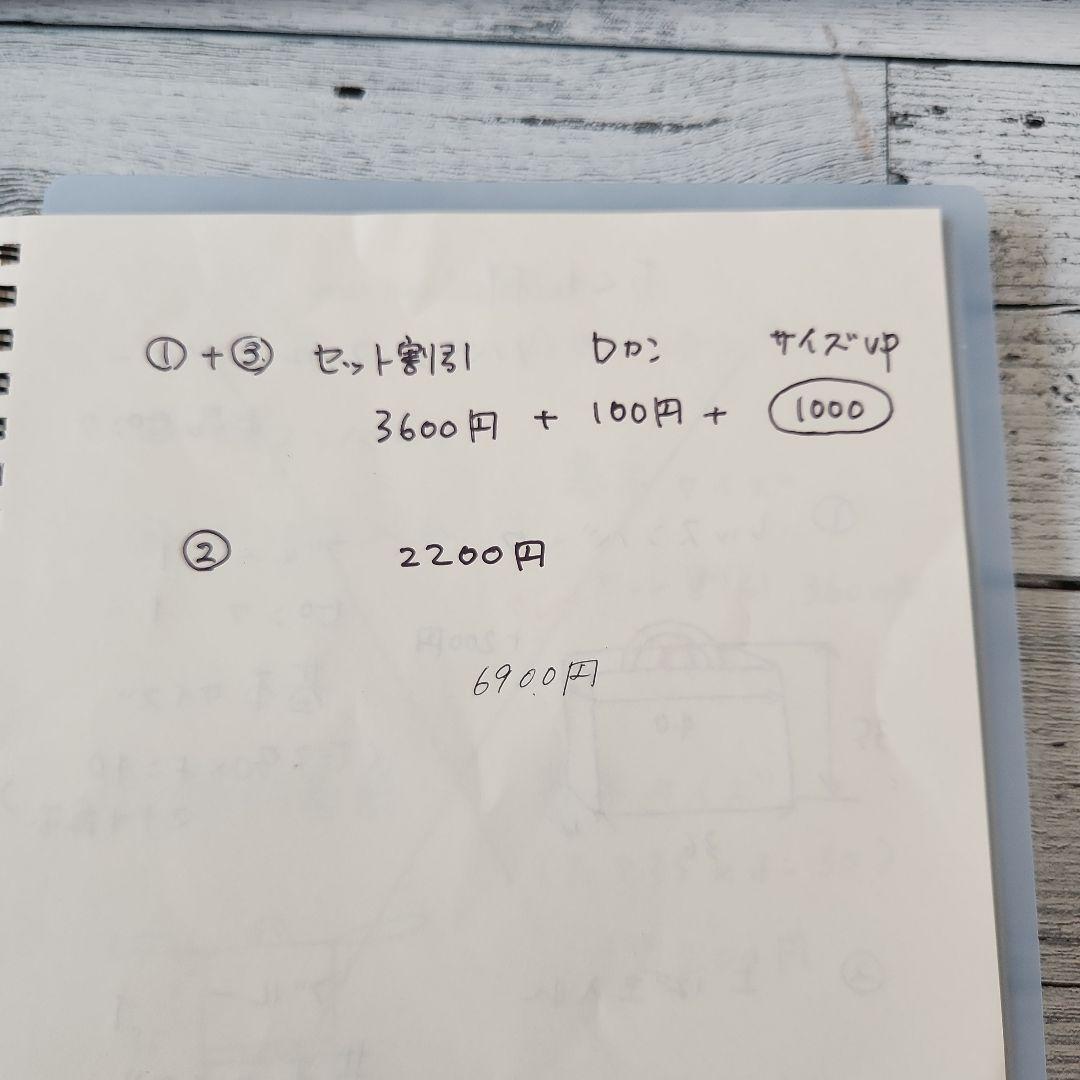 ①+③ セット割引 Dカン サイズUP
3600円 + 100円 + 1000
② 2200円
6900円